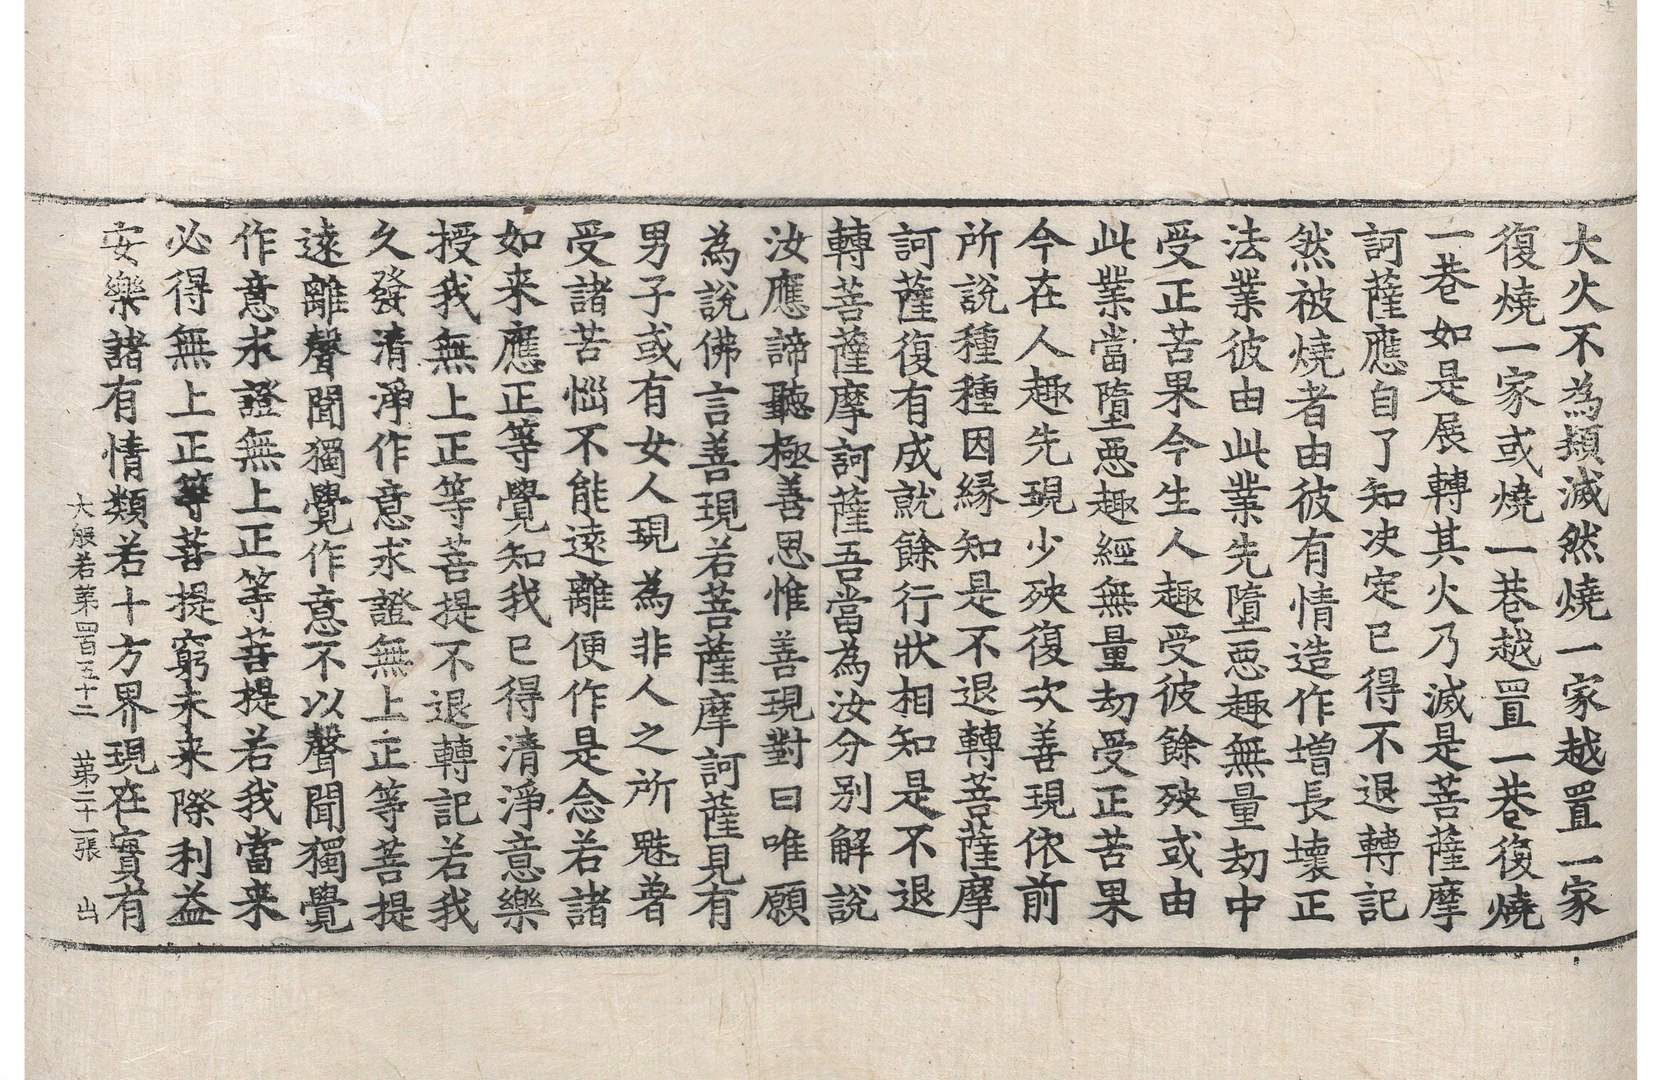 大火不為頻滅然燒一家越置一家
復燒一家或燒一巷越置一巷復燒
一巷如是展轉其火乃滅是菩薩摩
訶薩應自了知決定已得不退轉記
然被燒者由彼有情造作增長壞正
法業彼由此業先墮惡趣無量劫中
受正苦果今生人趣受彼餘殃或由
此業當墮惡趣經無量劫受正苦果
今在人趣先現少殃復次善現依前
所說種種因緣知是不退轉菩薩摩
訶薩復有成就餘行狀相知是不退
轉菩薩摩訶薩吾當為汝分別解說
汝應諦聽極善思惟善現對曰唯願
為說佛言善現若菩薩摩訶薩見有
男子或有女人現為非人之所魅著
受諸苦惱不能遠離便作是念若諸
如来應正等覺知我已得清淨意樂
授我無上正等菩提不退轉記若我
久發清淨作意求證無上正等菩提
遠離聲聞獨覺作意不以聲聞獨覺
作意求證無上正等菩提若我當来
必得無上正等菩提窮未来際利益
安樂諸有情類若十方界現在實有
大般若第四百五十二 第二十一張 出